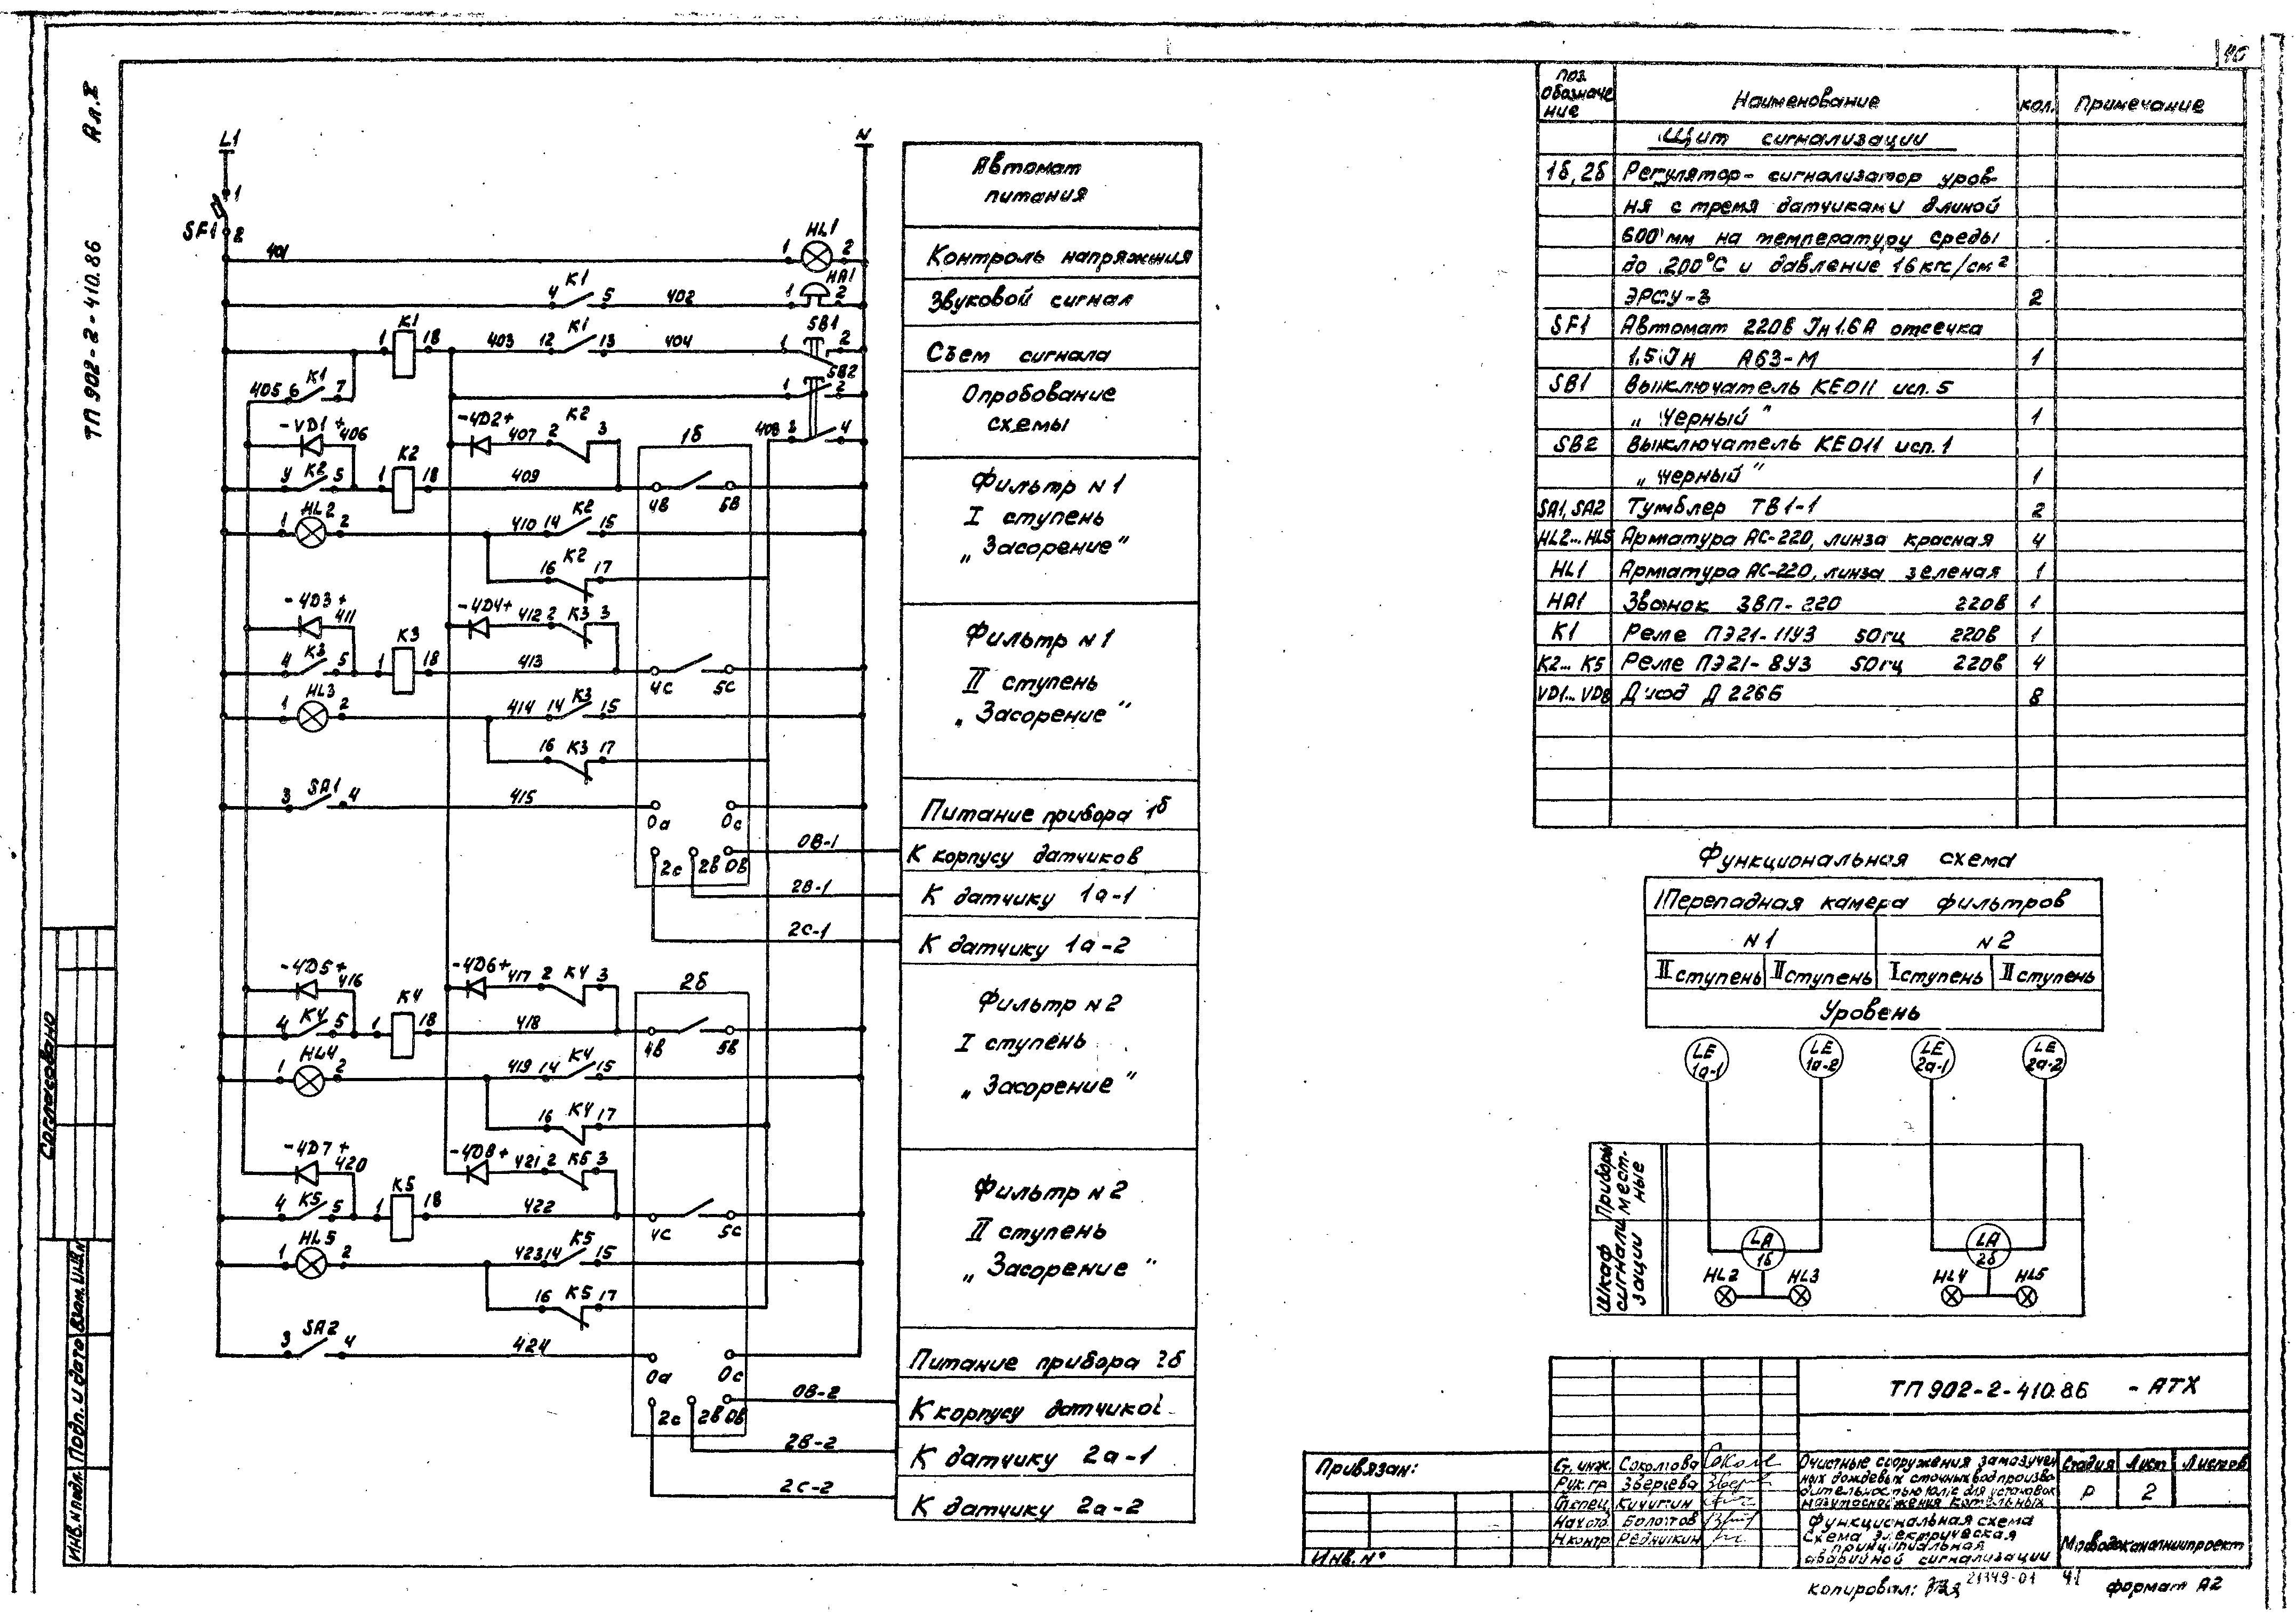 40
Ал. I
ТП 902-2-410.86
L1
N
1
SF1 2
401
1 HL1 2
4 K1 5
402
1 HA1 2
1 K1 18
403
12 K1 13
404
1 SB1 2
405 6 K1 7
1 SB2 2
- VD1 + 406
- 4D2 + 407
2 K2 3
1б
408 3 4
4 K2 5
1 K2 18
409
4В 5В
1 HL2 2
410 14 K2 15
16 K2 17
- 4D3 + 411
- 4D4 + 412
2 K3 3
4 K3 5
1 K3 18
413
4С 5С
1 HL3 2
414 14 K3 15
16 K3 17
3 SA1 4
415
0а 0с
2с 2В 0В
0В-1
2В-1
2С-1
- 4D5 + 416
- 4D6 + 417
2 K4 3
2б
4 K4 5
1 K4 18
418
4В 5В
1 HL4 2
419 14 K4 15
16 K4 17
- 4D7 + 420
- 4D8 + 421
2 K5 3
4 K5 5
1 K5 18
422
4С 5С
1 HL5 2
423 14 K5 15
16 K5 17
3 SA2 4
424
0а 0с
2с 2В 0В
0В-2
2В-2
2С-2
Автомат
питания
Контроль напряжения
Звуковой сигнал
Съем сигнала
Опробование
схемы
Фильтр N 1
I ступень
„ Засорение "
Фильтр N 1
II ступень
„ Засорение "
Питание прибора 1б
К корпусу датчиков
К датчику 1а-1
К датчику 1а-2
Фильтр N 2
I ступень
„ Засорение "
Фильтр N 2
II ступень
„ Засорение "
Питание прибора 2б
К корпусу датчиков
К датчику 2а-1
К датчику 2а-2
Поз. обозначе ние Наименование Кол. Примечание
Щит сигнализации
1б, 2б Регулятор-сигнализатор уров-
ня с тремя датчиками длиной
600 мм на температуру среды
до 200°С и давление 16 кгс/см²
ЭРСУ-3 2
SF1 Автомат 220В Iн 1.6А отсечка
1.5 Iн А63-М 1
SB1 Выключатель КЕ011 исп. 5
„ Черный " 1
SB2 Выключатель КЕ011 исп. 1
„ Черный " 1
SA1, SA2 Тумблер ТВ1-1 2
HL2... HL5 Арматура АС-220, линза красная 4
HL1 Арматура АС-220, линза зеленая 1
HA1 Звонок ЗВП-220 220В 1
K1 Реле ПЭ21-11У3 50гц 220В 1
K2... K5 Реле ПЭ21-8У3 50гц 220В 4
VD1... VD8 Диод Д 226Б 8
Функциональная схема
Перепадная камера фильтров
N 1 N 2
II ступень II ступень I ступень II ступень
Уровень
LE 1а-1
LE 1а-2
LE 2а-1
LE 2а-2
Приборы мест-ные
Шкаф сигнали зации
LA 1б
LA 2б
HL2 HL3
HL4 HL5
Согласовано
Взам. инв. N
Подп. и дата
Инв. N подл.
Привязан:
Инв. N°
ТП 902-2-410.86 - АТХ
Ст. инж. Соколова
Рук. гр. Зверева
Гл. спец. Кичигин
Нач. отд. Болотов
Н. контр.
Очистные сооружения замазучен
ных дождевых сточных вод произво
дительностью 10 л/с для установок
мазутоснабжения котельных
Стадия Лист Листов
Р 2
Функциональная схема
Схема электрическая
принципиальная
аварийной сигнализации
Мосводоканалниипроект
Копировал:
21349-01 41
Формат А2